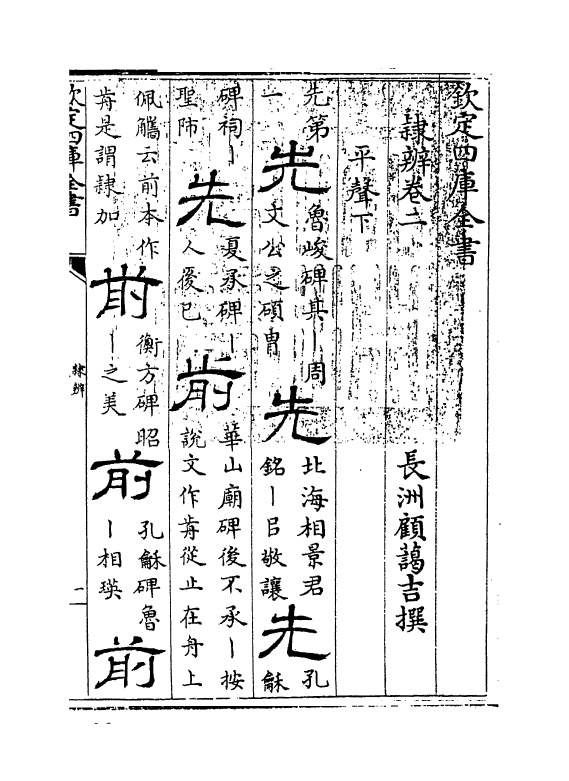 欽定四庫全書
隸辨卷二
長洲顧藹吉撰
平聲下
先第一 先 魯峻碑其丨周文公之碩胄 先 北海相景君銘丨㠯敬讓 先 孔龢
碑祠丨聖師 先 夏承碑丨人後已 前 華山廟碑後不承丨按說文作歬從止在舟上
佩觿云前本作歬是謂隸加 前 衡方碑昭丨之美 前 孔龢碑魯丨相瑛 前
欽定四庫全書
隸辨
一